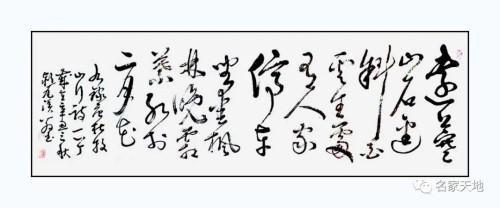 遠上寒
山石徑
斜白
雲生處
有人家
停車
坐愛楓
林晚霜
葉紅於
二月花
右錄唐杜牧
山行詩一首
辛丑之秋
名家天地